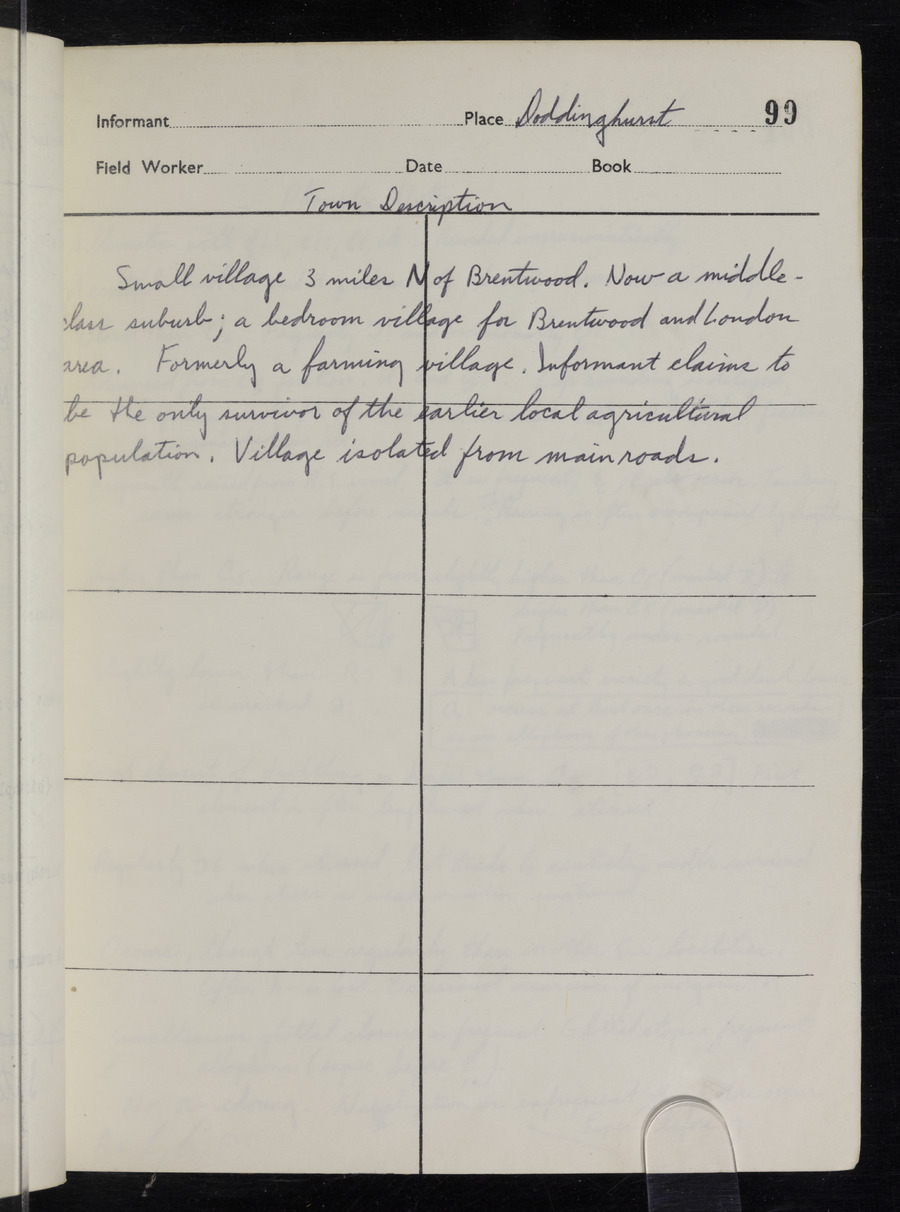 Informant Place Doddinghurst 99
Field Worker Date Book
Town Description
Small village 3 miles N of Brentwood. Now a middle-
class suburb; a bedroom village for Brentwood and London
area. Formerly a farming village. Informant claims to
be the only survivor of the earlier local agricultural
population. Village isolated from main roads.